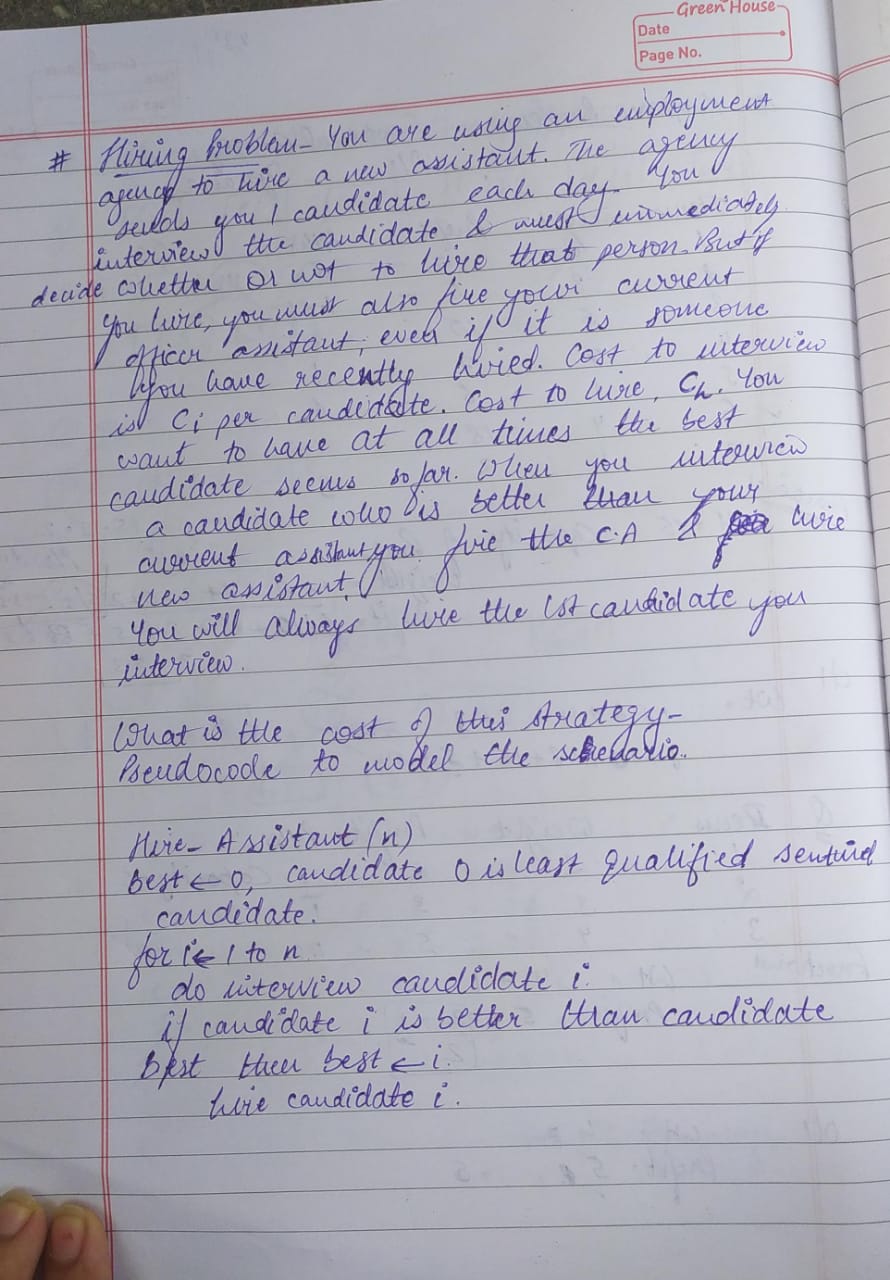 Green House
Date
Page No.
# Hiring Problem - You are using an employment
agency to hire a new assistant. The agency
sends you 1 candidate each day. You
interview the candidate & must immediately
decide whether or not to hire that person. But if
you hire, you must also fire your current
officer assistant, even if it is someone
you have recently hired. Cost to interview
is Ci per candidate. Cost to hire, Ch. You
want to have at all times the best
candidate seems so far. When you interview
a candidate who is better than your
current assistant you fire the C.A & hire
new assistant.
You will always hire the 1st candidate you
interview.
What is the cost of this strategy-
Pseudocode to model the scenario.
Hire-Assistant (n)
best ← 0, candidate 0 is least qualified
candidate.
for i ← 1 to n
do interview candidate i.
if candidate i is better than candidate
best then best ← i.
hire candidate i.